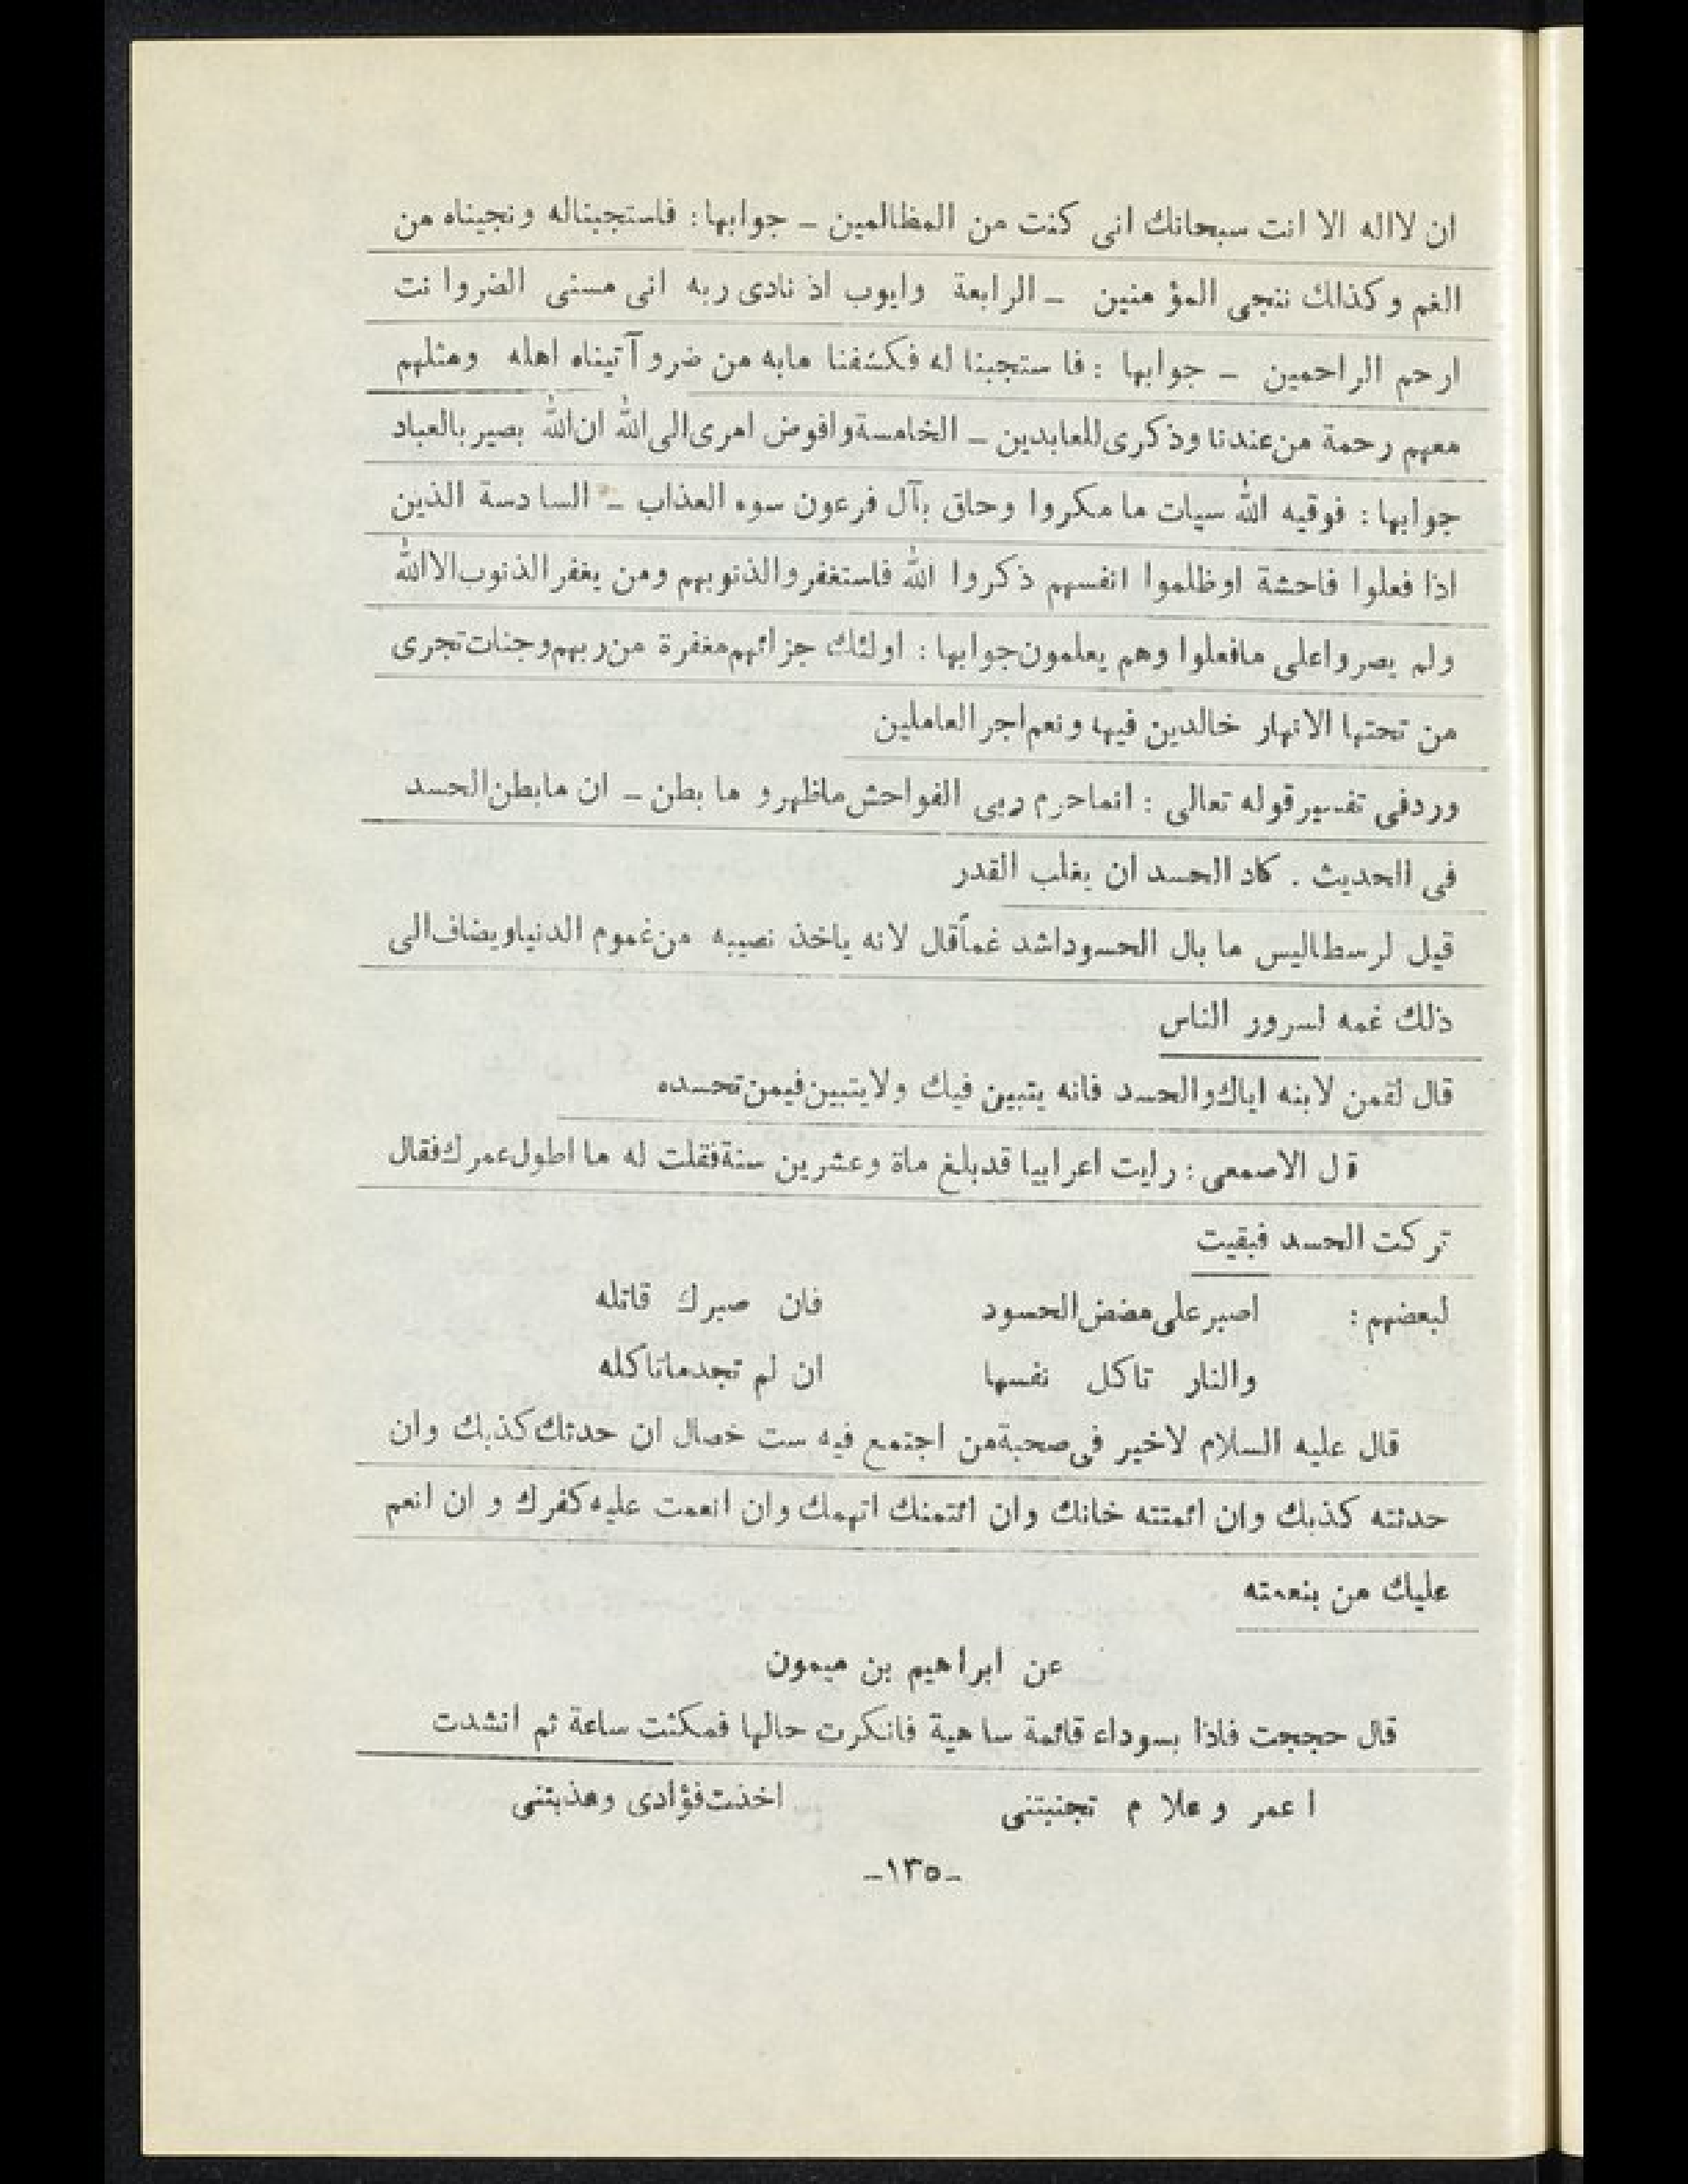 ان لااله الا انت سبحانك انى كنت من الظالمين ــ جوابها: فاستجبناله ونجيناه من
الغم وكذالك ننجى المؤ منين ــ الرابعة وايوب اذ نادى ربه انى مسنى الضروا نت
ارحم الراحمين ــ جوابها : فا ستجبنا له فكشفنا مابه من ضرو آتيناه اهله ومثلهم
معهم رحمة من عندنا وذكرى للعابدين ــ الخامسة وافوض امرى الى الله ان الله بصير بالعباد
جوابها : فوقيه الله سيات ما مكروا وحاق بآل فرعون سوء العذاب ــ السا دسة الذين
اذا فعلوا فاحشة اوظلموا انفسهم ذكروا الله فاستغفروالذنوبهم ومن يغفر الذنوب الا الله
ولم يصرواعلى مافعلوا وهم يعلمون جوابها : اولئك جزائهم مغفرة من ربهم وجنات تجرى
من تحتها الانهار خالدين فيها ونعم اجر العاملين
وردفى تفسير قوله تعالى : انما حرم ربى الفواحش ماظهر و ما بطن ــ ان مابطن الحسد
فى الحديث . كاد الحسد ان يغلب القدر
قيل لرسطاليس ما بال الحسود اشد غماً قال لانه ياخذ نصيبه من غموم الدنيا ويضاف الى
ذلك غمه لسرور الناس
قال لقمن لابنه اياك والحسد فانه يتبين فيك ولايتبين فيمن تحسده
قل الاصمعى : رايت اعرابيا قدبلغ ماة وعشرين سنة فقلت له ما اطول عمرك فقال
تركت الحسد فبقيت
لبعضهم : اصبر على مضض الحسود فان صبرك قاتله
والنار تاكل نفسها ان لم تجدماتاكله
قال عليه السلام لاخير فى صحبة من اجتمع فيه ست خصال ان حدثك كذبك وان
حدثته كذبك وان ائمنته خانك وان ائتمنك اتهمك وان انعمت عليه كفرك و ان انعم
عليك من بنعمته
عن ابراهيم بن ميمون
قال حججت فاذا بسوداء قائمة سا هية فانكرت حالها فمكثت ساعة ثم انشدت
ا عمر و علا م تجنبتنى اخذت فؤادى وعذبتنى
ــ١٣٥ــ